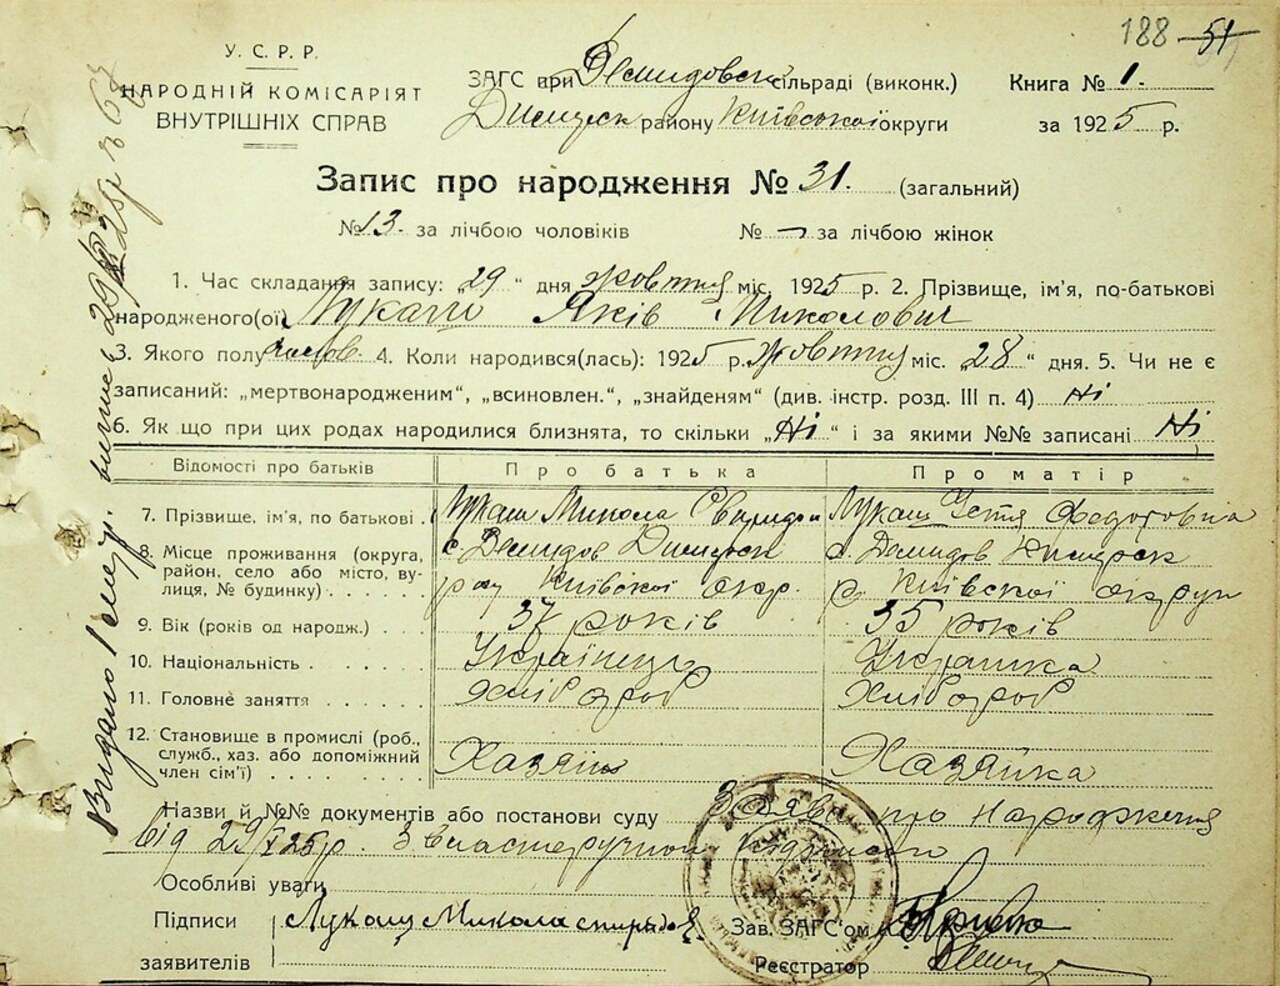 188 51
У. С. Р. Р.
НАРОДНІЙ КОМІСАРІЯТ
ВНУТРІШНІХ СПРАВ
ЗАГС при Демидовск сільраді (виконк.)
Димерск району Київської округи
Книга № 1.
за 1925 р.
Запис про народження № 31. (загальний)
№ 13. за лічбою чоловіків № — за лічбою жінок
1. Час складання запису: „29“ дня жовтня міс. 1925 р. 2. Прізвище, ім’я, по-батькові
народженого(ої) Лукаш Яків Миколович
3. Якого полу 4. Коли народився(лась): 1925 р. Жовтня міс. „28“ дня. 5. Чи не є
записаний: „мертвонародженим“, „всиновлен.“, „знайденям“ (див. інстр. розд. III п. 4) Ні
6. Як що при цих родах народилися близнята, то скільки „Ні“ і за якими №№ записані Ні
Відомості про батьків Про батька Про матір
7. Прізвище, ім’я, по батькові . Лукаш Микола Лукаш Устя Федотовна
8. Місце проживання (округа, с. Демидов Димерск с. Демидов Димерск
район, село або місто, ву-
лиця, № будинку) . . . . . Київскої окр. р. Київскої округи
9. Вік (років од народж.) . . . 37 років 35 років
10. Національність . . . . . . Українець Українка
11. Головне заняття . . . . . . Хлібороб Хлібороб
12. Становище в промислі (роб.,
служб., хаз. або допоміжний
член сім’ї) . . . . . . . . Хазяїн Хазяйка
Назви й №№ документів або постанови суду Заява про народження
від 29/X 25р. З власноручною підписею
Особливі уваги
Підписи Лукаш Микола Зав. ЗАГС’ом
заявителів Реєстратор
Видано